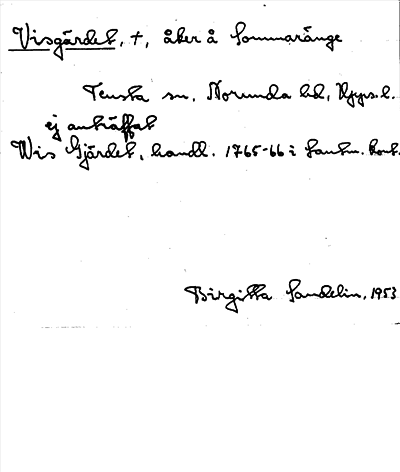 Visgärdet, +, åker å Sommaränge
Tensta sn, Norunda hd, Upps. l.
ej anträffat
Wis Gjärdet, handl. 1765-66 i Lantm. kont.
Birgitta Sandelin, 1953